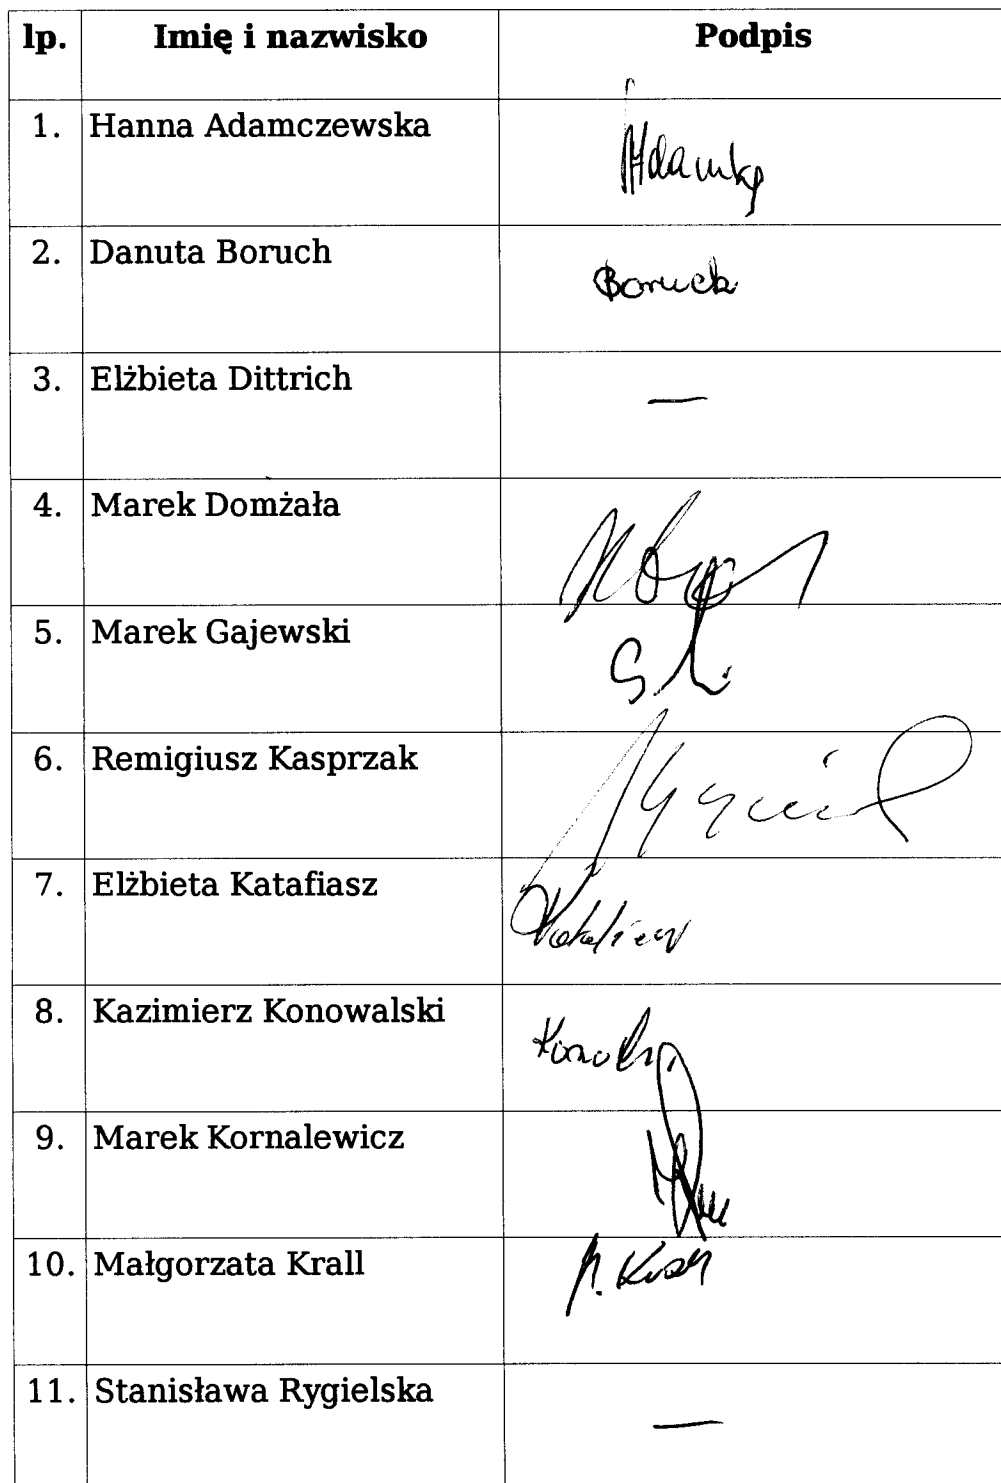 lp. Imię i nazwisko Podpis
1. Hanna Adamczewska
2. Danuta Boruch Boruch
3. Elżbieta Dittrich —
4. Marek Domżała
5. Marek Gajewski
6. Remigiusz Kasprzak
7. Elżbieta Katafiasz
8. Kazimierz Konowalski
9. Marek Kornalewicz
10. Małgorzata Krall M. Krall
11. Stanisława Rygielska —